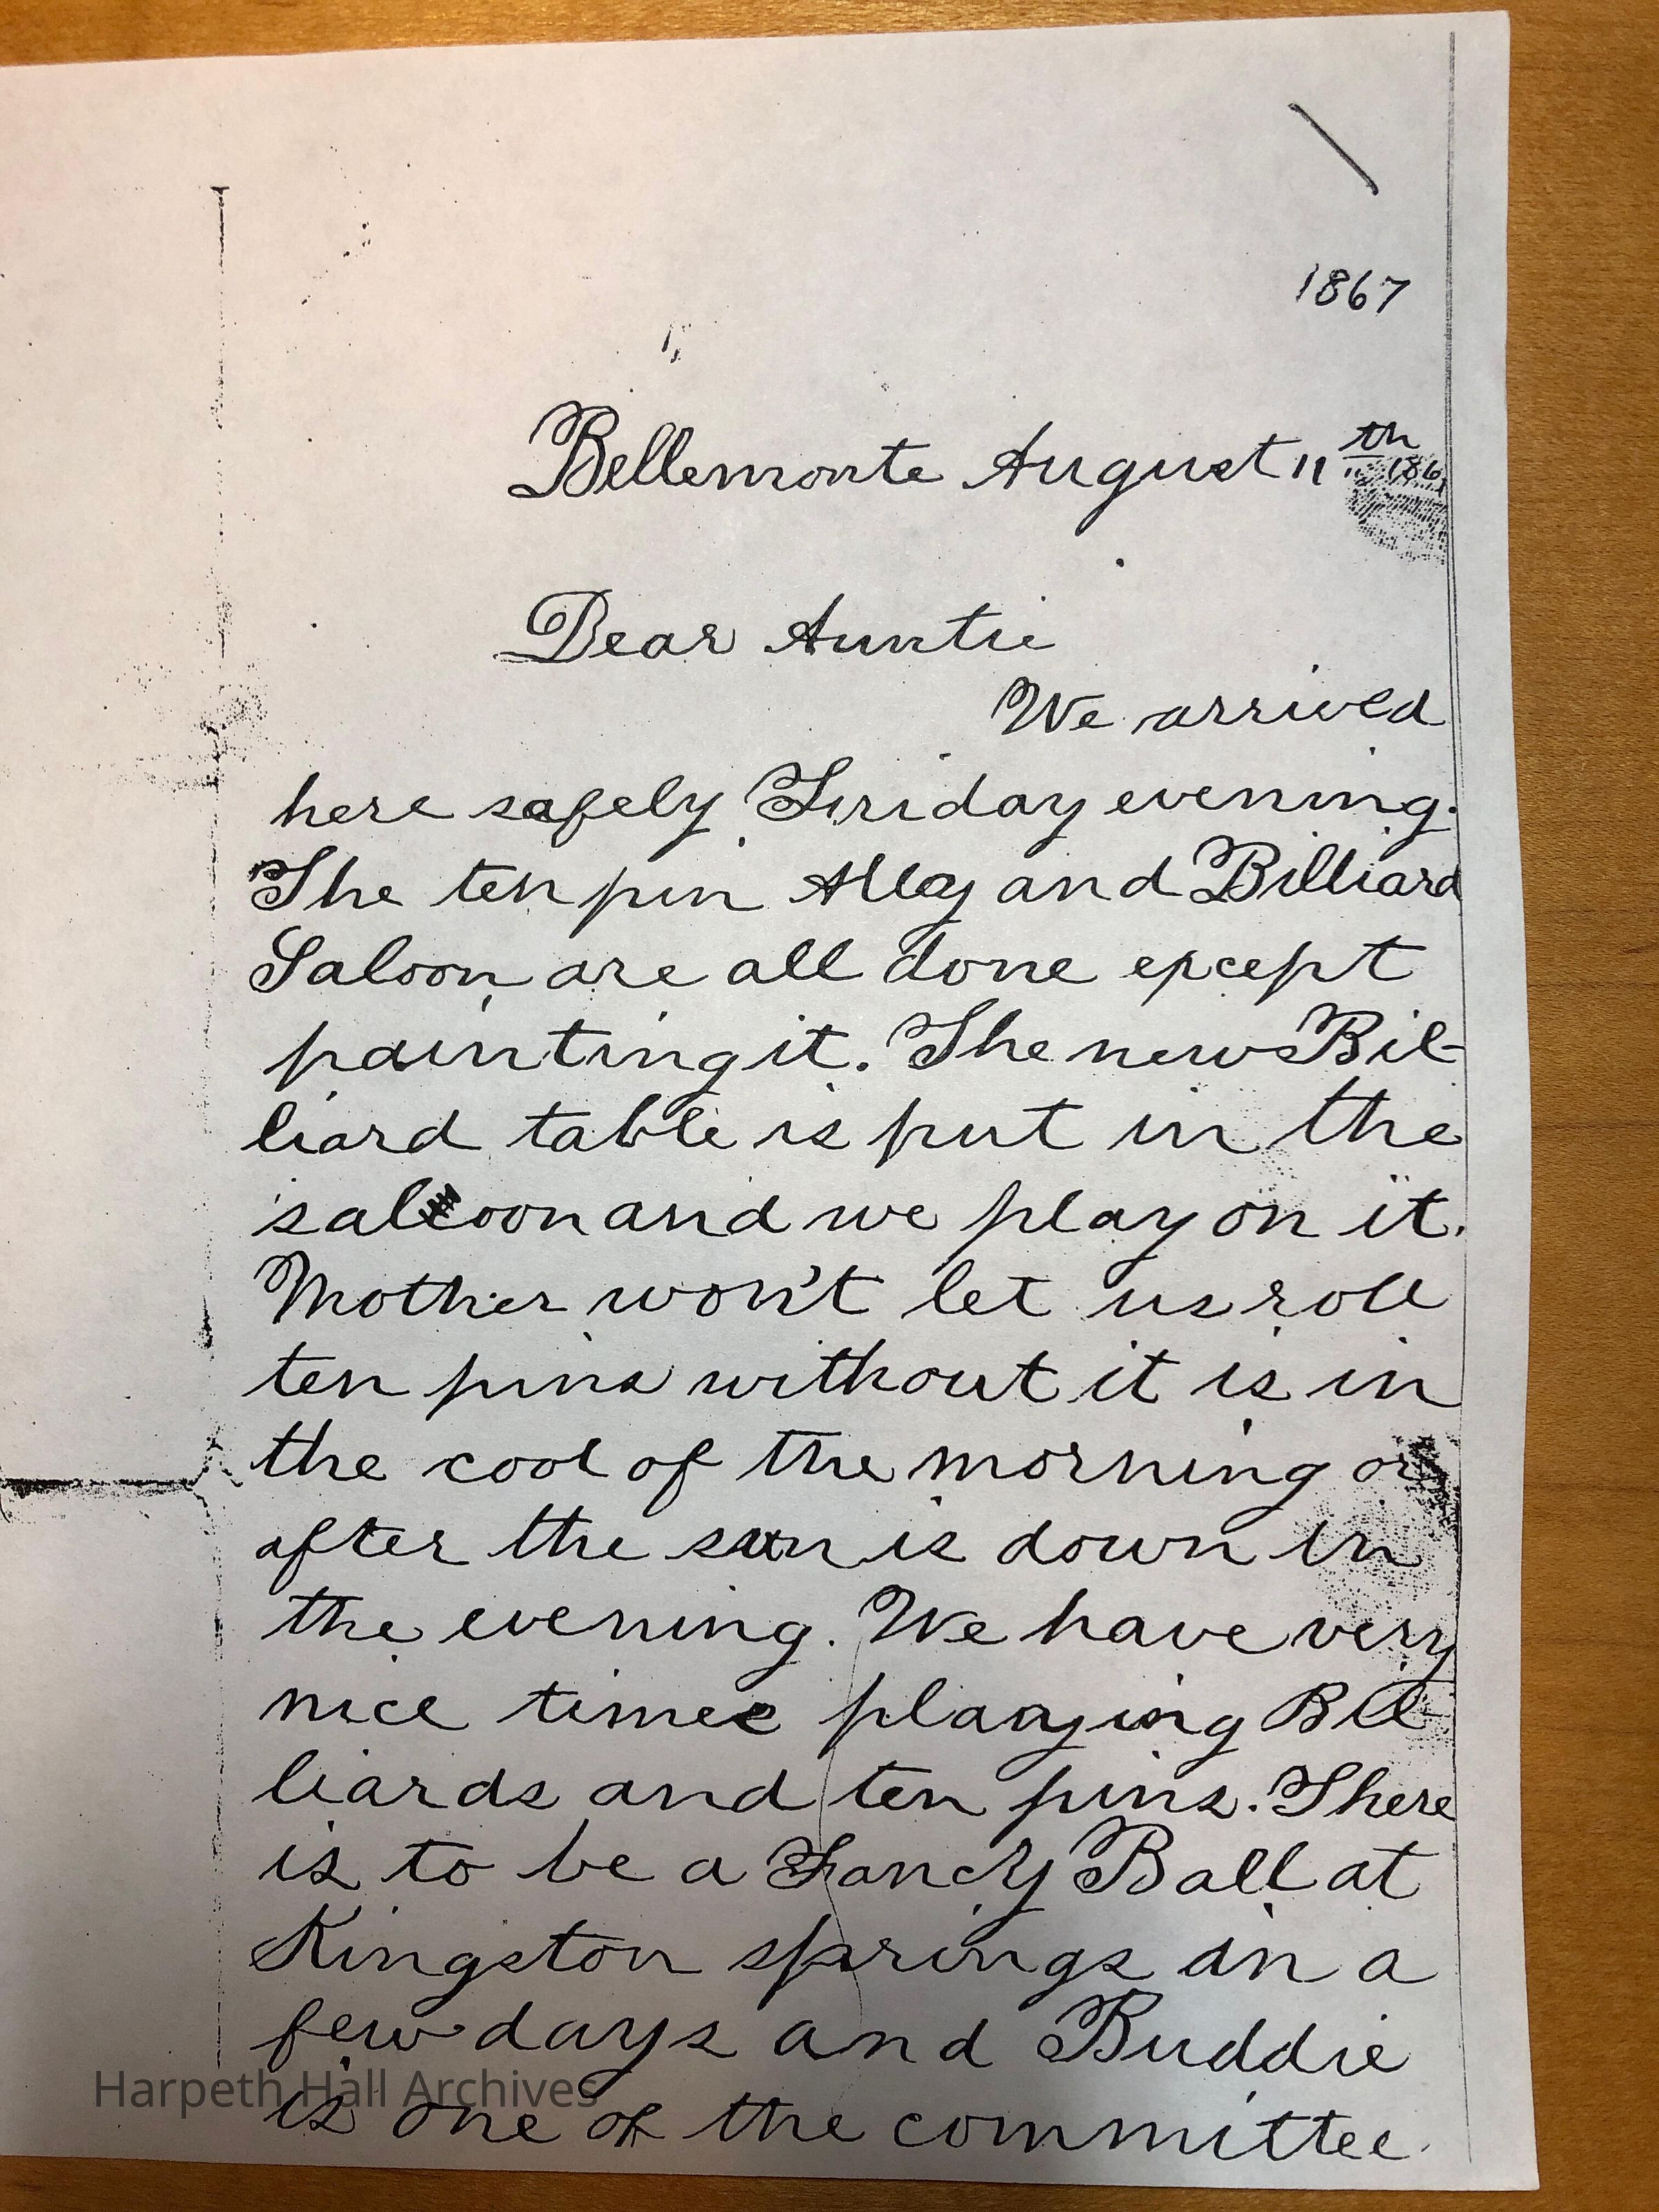 1867
Bellemonte August 11th 186
Dear Auntie
We arrived
here safely Friday evening.
The ten pin Alley and Billiard
Saloon are all done except
painting it. The new Bil-
liard table is put in the
saloon and we play on it.
Mother won't let us roll
ten pins without it is in
the cool of the morning or
after the sun is down in
the evening. We have very
nice times playing Bil
liards and ten pins. There
is to be a Fancy Ball at
Kingston springs in a
few days and Buddie
is one of the committee
Harpeth Hall Archives